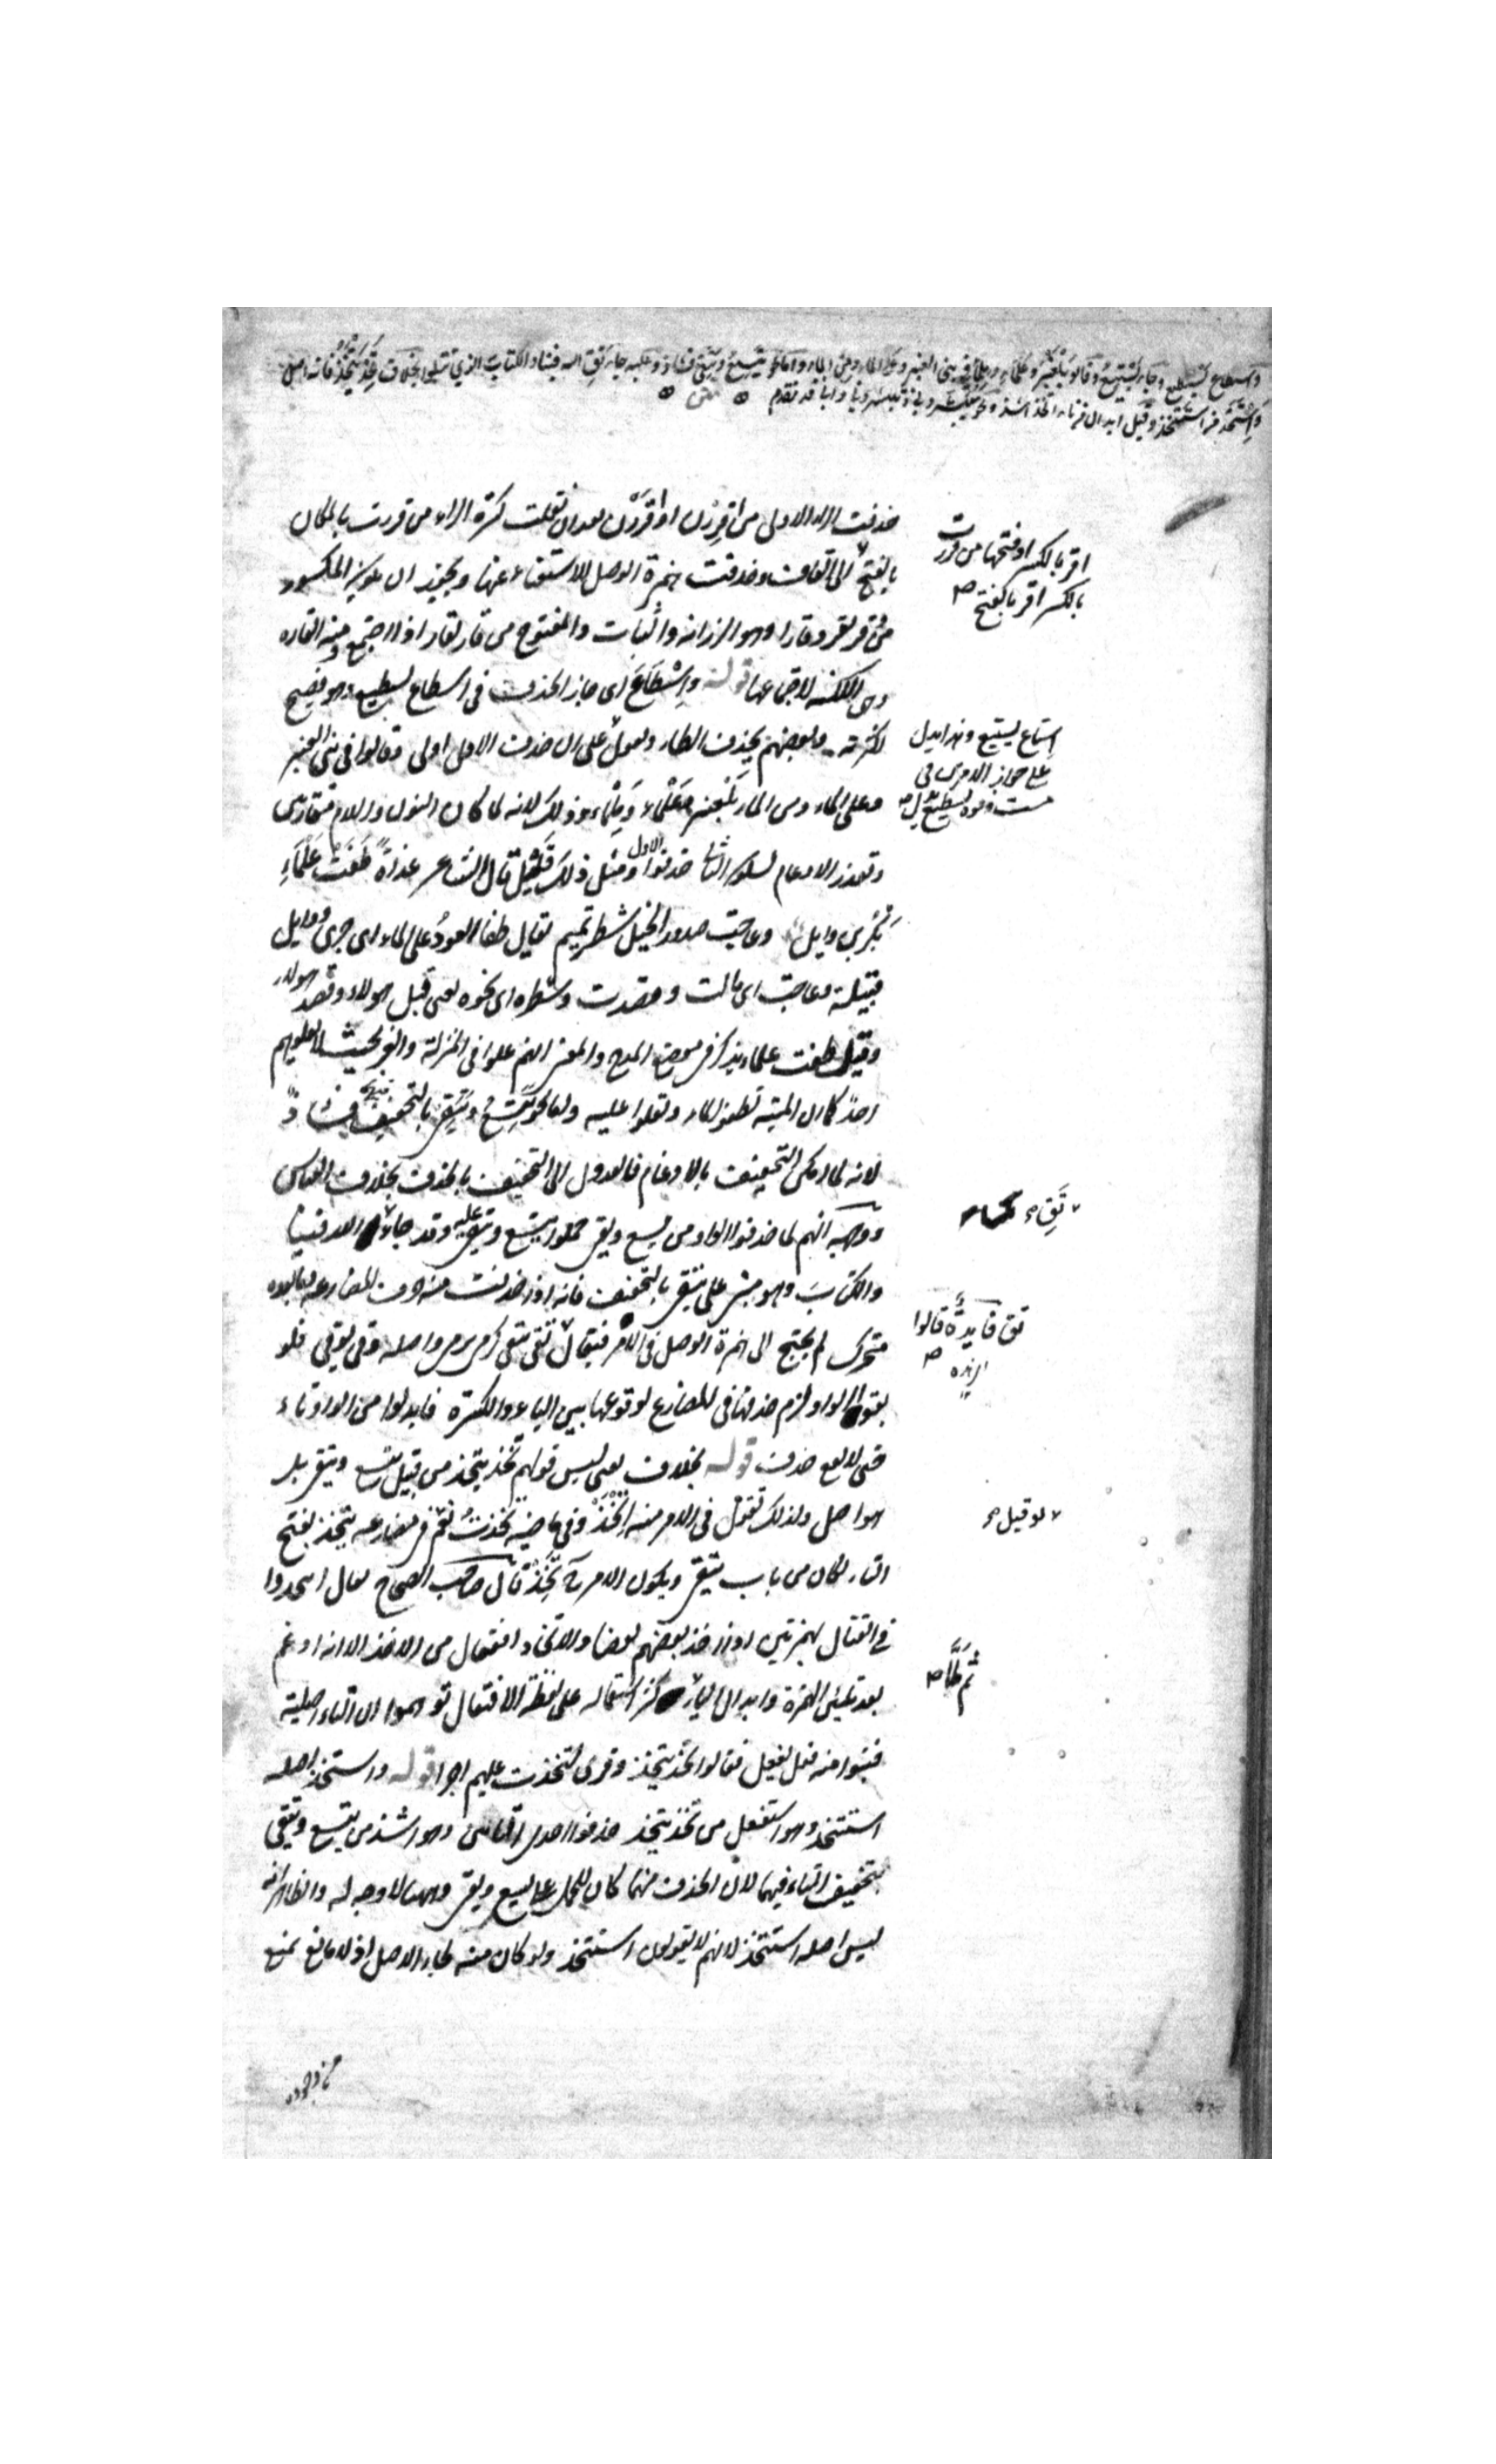 واسطاع يسطيع وجاء يستيع وقالوا بلعنبر وعلماء وملماء في بني العنبر وعلى الماء ومن الماء واما نحو يتسع ويتقي فشاذ وعليه جاء تق الله فينا والكتاب الذي تتلو بخلاف تخذ يتخذ فانه اصل
واستخذ من استتخذ وقيل ابدال من تاء اتخذ اشذ ونحو تبشروني وتبشريني واني قد تقدم متن
حذفت الراء الاولى من اقررن او اقررن بعد ان نقلت كسرة الراء من قررت بالمكان
اقر بالكسر او فتحها من قررت
بالكسر اقر بالفتح صح
بالفتح الى القاف وحذفت همزة الوصل للاستغناء عنها ويجوز ان يكون المكسور
من وقر يقر وقارا وهو الرزانة والثبات والمفتوح من قار يقار اذا اجتمع ومنه القاره
وهي الاكمة لاجتماعها قوله واسطاع اي جاز الحذف في اسطاع يسطيع وهو فصيح
لكثرته وبعضهم يحذف الطاء ويقول على ان حذف الاول اولى وقالوا في بني العنبر
استاع يستيع وهذا يدل
على جواز الامرين في
وعلى الماء ومن الماء بلعنبر وعلماء وملماء وذلك لانه لما كان النون واللام متقاربين
وتعذر الادغام لسكون الثاني حذفوا الاول ومثل ذلك قليل قال الشاعر غداة طفت علماء
بكر بن وايل وعاجت صدور الخيل شطر تميم يقال طفا العود على الماء اي جرى ووايل
قبيلة وعاجت اي مالت وقصدت وشطره اي نحوه يعني قبل هولاء وقصد هولاء
وقيل طفت علماء يذكر في معرض المدح والمعنى انهم علوا في المنزلة والعز بحيث لا يعلوهم
احد كما ان الميتة تطفو الماء وتعلوا عليه واما نحو يتسع ويتقي بالتخفيف فشاذ
لانه لما امكن التخفيف بالادغام فالعدول الى التخفيف بالحذف بخلاف القياس
ووجهه انهم لما حذفوا الواو من يسع ويقي حملوا يتسع ويتقي عليه وقد جاء الله فينا
تق
والكتاب وهو مبني على يتقي بالتخفيف فانه اذا حذفت منه حرف المضارعة وما بعده
متحرك لم يحتج الى همزة الوصل في الامر فيقال تق تقي كرمى يرمي واصله وقى يوقي فلو
تق فايدة قالوا
بقوا الواو لزم حذفها في المضارع لوقوعها بين الياء والكسرة فابدلوا من الواو تاء
حتى لا يقع حذف قوله بخلاف يعني ليس قولهم تخذ يتخذ من قبيل يتسع ويتقي بل
هو اصل ولذلك تقول في الامر منه اتخذ وفي ماضيه تخذت نعم في مضارعه يتخذ بفتح
لو قيل صح
التاء لكان من باب يتقي ويكون الامر منه تخذ قال صاحب الصحاح يقال ايتخذوا
في القتال بهمزتين اذا اخذ بعضهم بعضا والاتخاذ افتعال من الاخذ الا انه ادغم
بعد تليين الهمزة وابدال الياء كثر استعماله على لفظة الافتعال توهموا ان التاء اصلية
ثم لما صح
فبنوا منه فعل يفعل فقالوا تخذ يتخذ وقرى لتخذت عليه اجرا قوله واستخذ اصله
استتخذ وهو استفعل من تخذ يتخذ حذفوا احدى التائين وهو اشذ من يتسع ويتقي
بتخفيف التاء فيهما لان الحذف منهما كان للحمل على يسع ويقي وههنا لا وجه له والظاهر انه
ليس اصله استتخذ لانهم لا يقولون استتخذ ولو كان منه لجاء الاصل اذ لا مانع يمنع
من وجوده